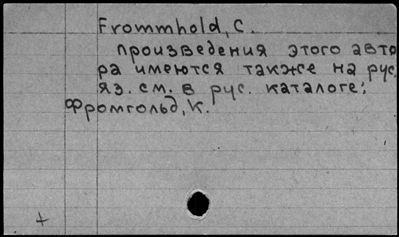 Frommhold, C.
произведения этого авто
ра имеются также на рус.
яз. см. в рус. каталоге:
Фромгольд, К.
+